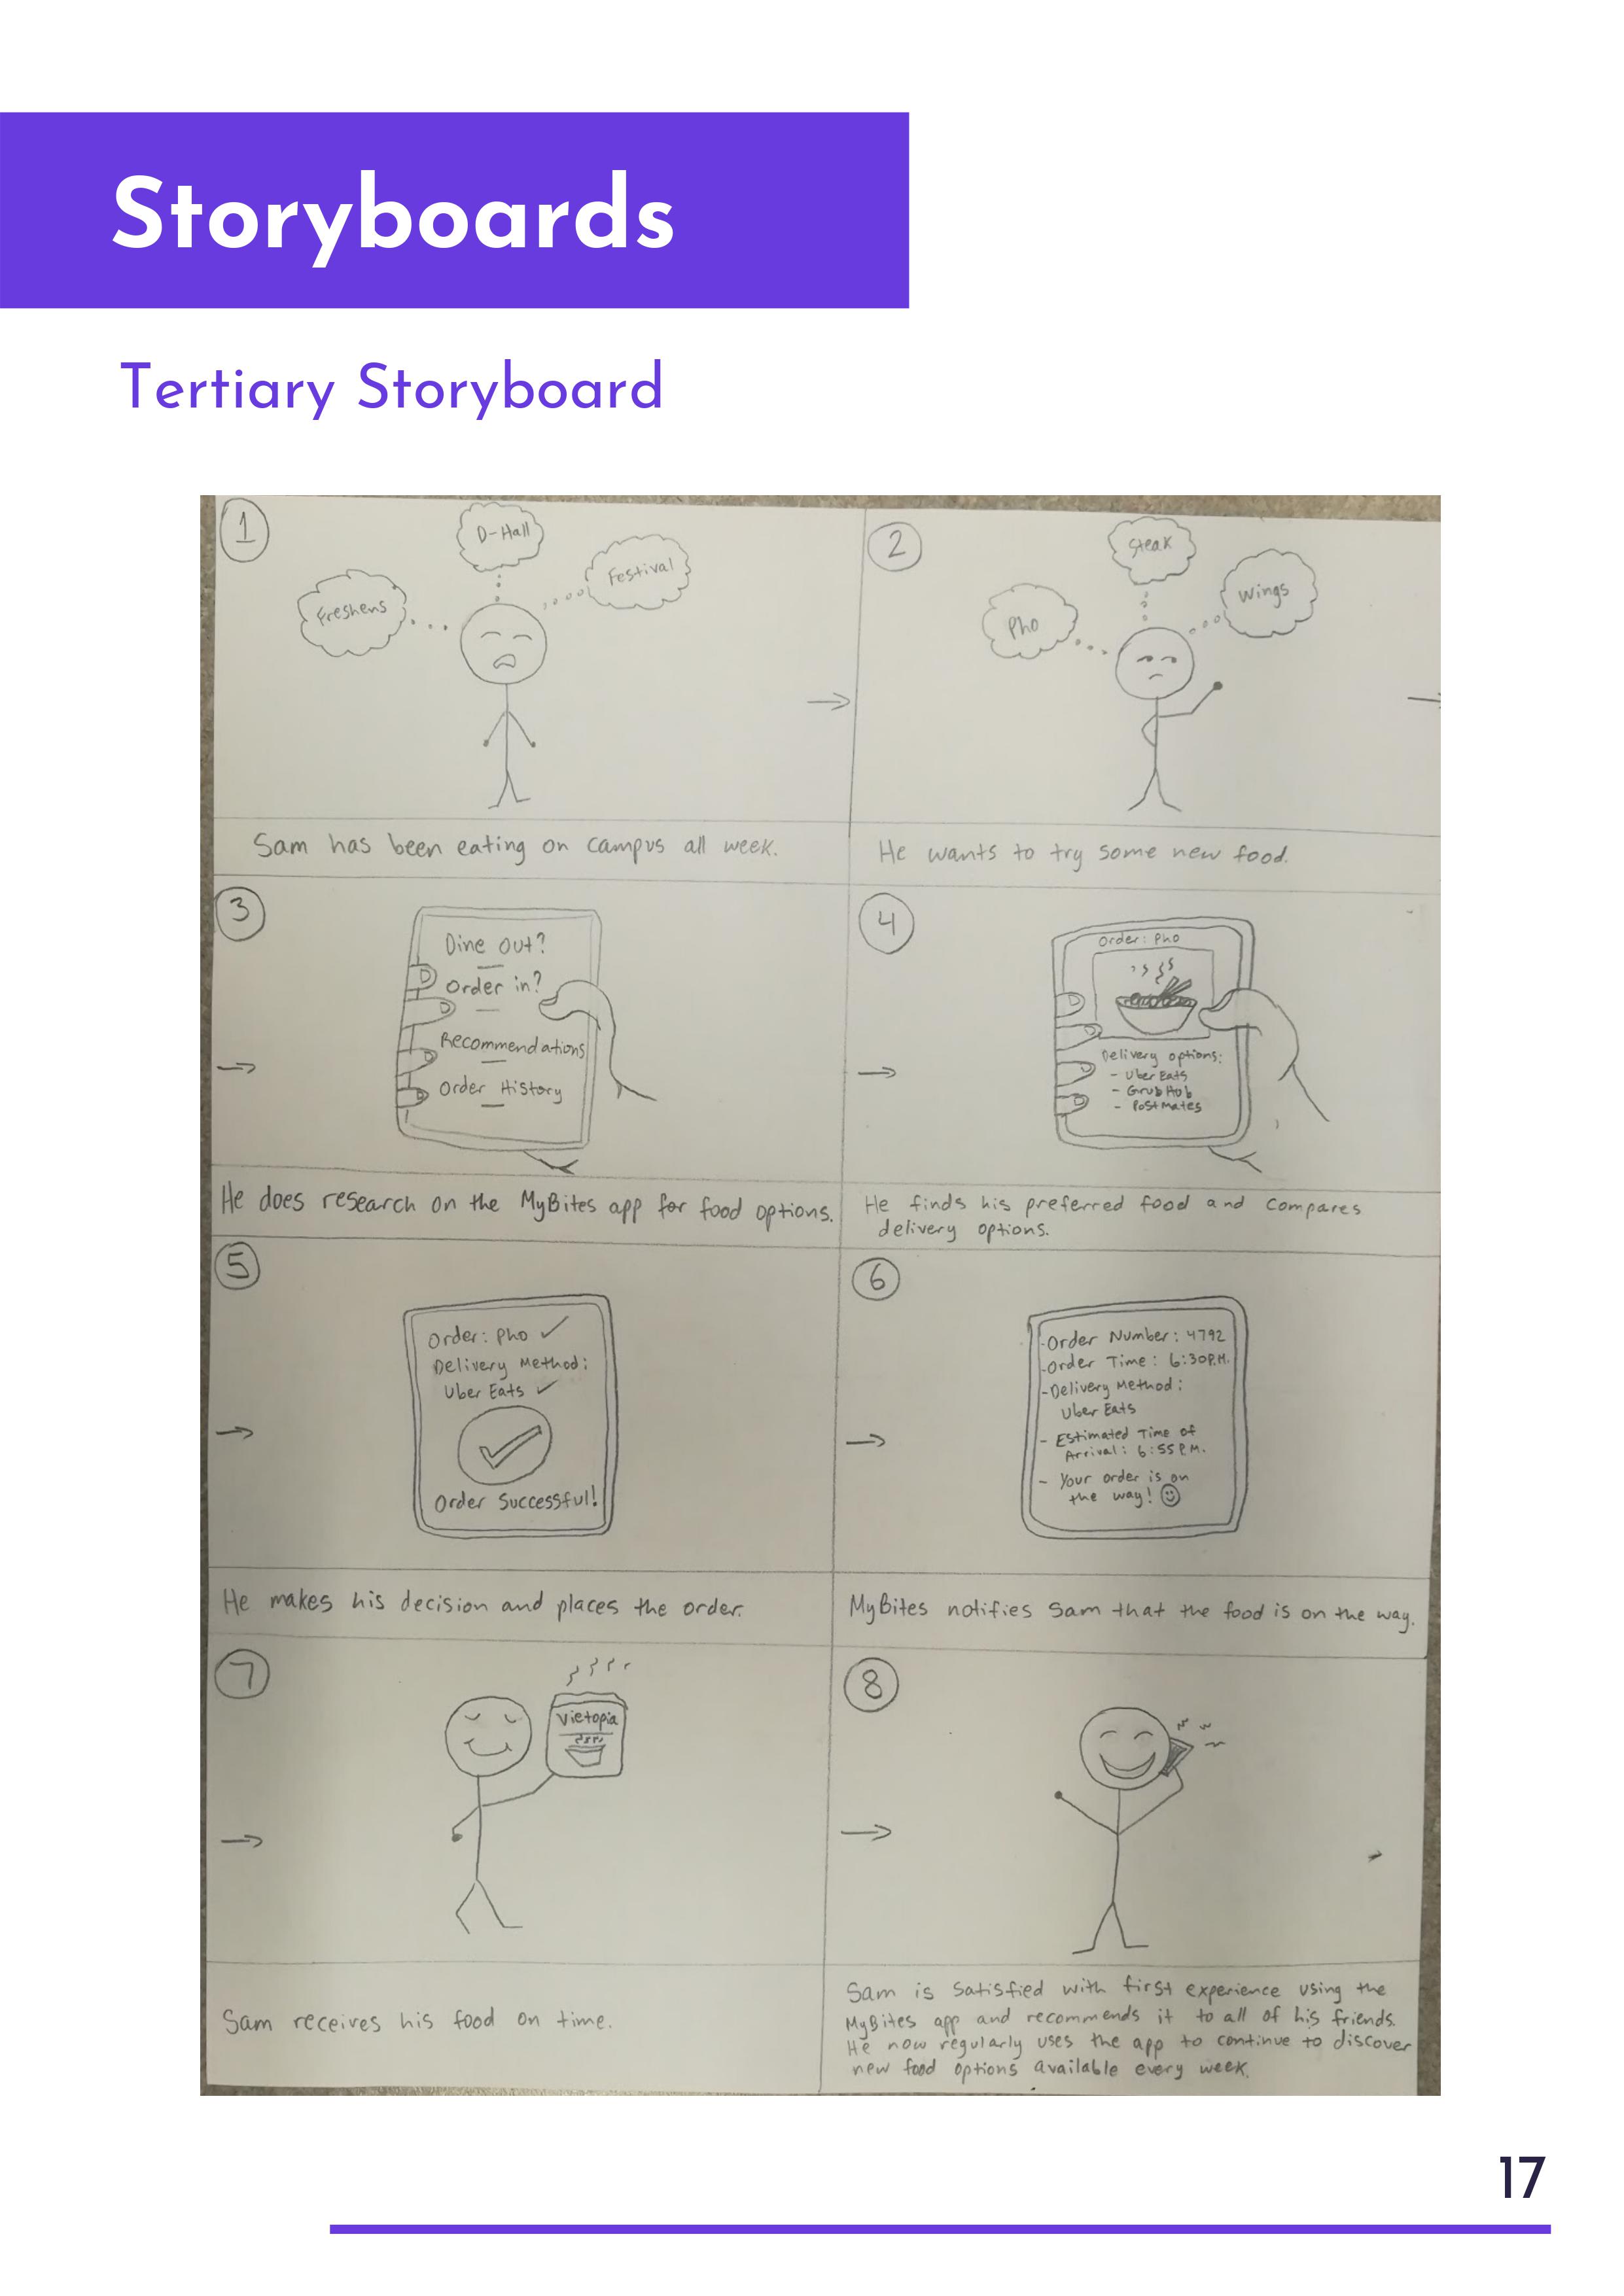 Storyboards
Tertiary Storyboard
1
D-Hall
Freshens
Festival
Sam has been eating on campus all week.
2
Steak
Pho
Wings
He wants to try some new food.
3
Dine out?
Order in?
Recommendations
Order History
He does research on the MyBites app for food options.
4
Order: Pho
Delivery options:
- Uber Eats
- GrubHub
- PostMates
He finds his preferred food and compares
delivery options.
5
Order: Pho ✓
Delivery Method:
Uber Eats ✓
Order Successful!
He makes his decision and places the order.
6
-Order Number: 4792
-Order Time: 6:30P.M.
-Delivery Method:
Uber Eats
- Estimated Time of
Arrival: 6:55P.M.
- Your order is on
the way! ☺
MyBites notifies Sam that the food is on the way.
7
Vietopia
Sam receives his food on time.
8
Sam is satisfied with first experience using the
MyBites app and recommends it to all of his friends.
He now regularly uses the app to continue to discover
new food options available every week.
17